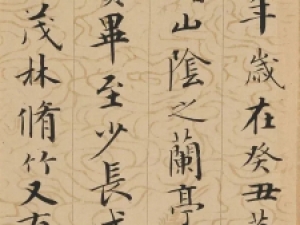 年歲在癸丑暮
山陰之蘭亭
畢至少長咸
茂林脩竹又有